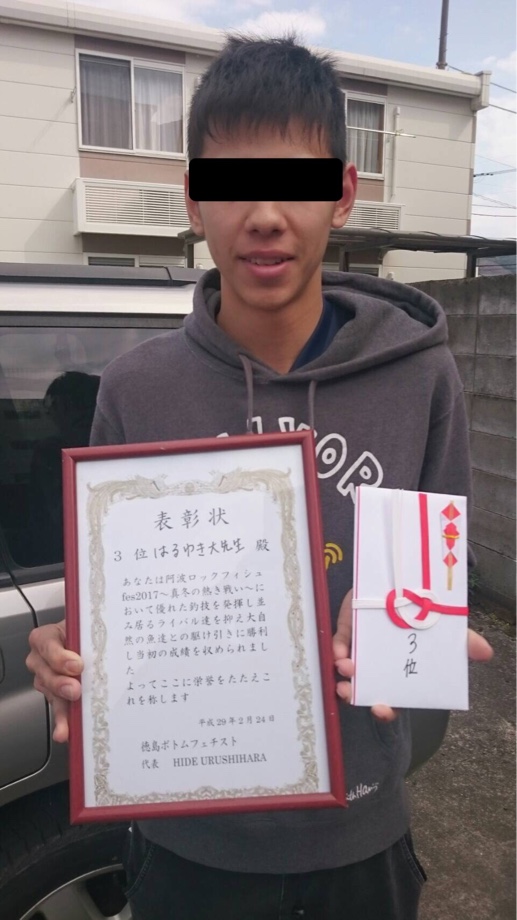 表彰状
3 位 はるゆき大先生 殿
あなたは阿波ロックフィシュ
fes2017～真冬の熱き戦い～に
おいて優れた釣技を発揮し並
み居るライバル達を抑え大自
然の魚達との駆け引きに勝利
し当初の成績を収められまし
た
よってここに栄誉をたたえこ
れを称します
平成29年2月24日
徳島ボトムフェチスト
代表 HIDE URUSHIHARA
3
位